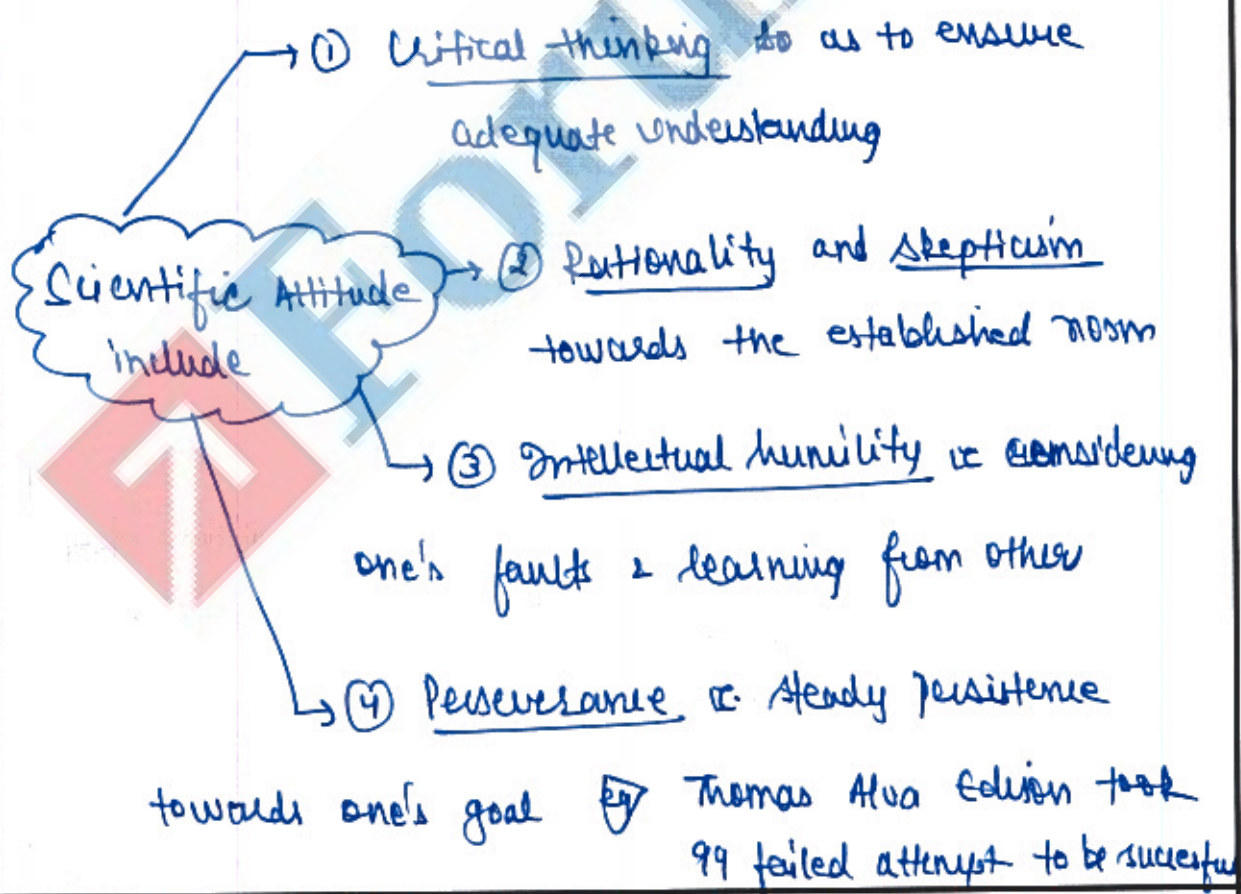 ① Critical thinking so as to ensure
adequate understanding
Scientific Attitude
include
② Rationality and skepticism
towards the established norm
③ Intellectual humility ie considering
one's faults & learning from other
④ Perseverance ie. steady persistence
towards one's goal eg Thomas Alva Edison took
99 failed attempt to be succesful